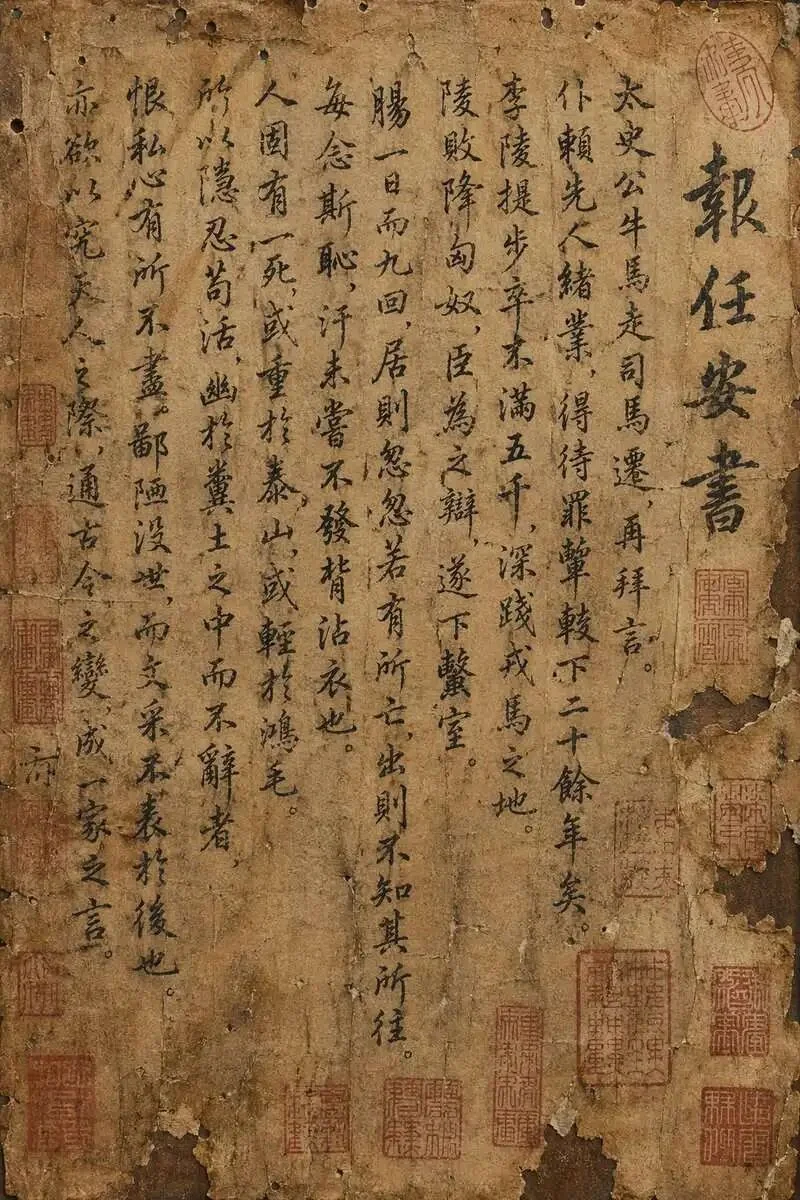 報任安書
太史公牛馬走司馬遷,再拜言。
仆賴先人緒業,得待罪輦轂下二十餘年矣。
李陵提步卒不滿五千,深踐戎馬之地。
陵敗降匈奴,臣為之辯,遂下蠶室。
腸一日而九回,居則忽忽若有所亡,出則不知其所往。
每念斯恥,汗未嘗不發背沾衣也。
人固有一死,或重於泰,山,或輕於鴻毛。
所以隱忍苟活,幽於糞土之中而不辭者,
恨私心有所不盡。鄙陋沒世,而文采不表於後也。
亦欲以究天人之際,通古今之變,成一家之言。
亦